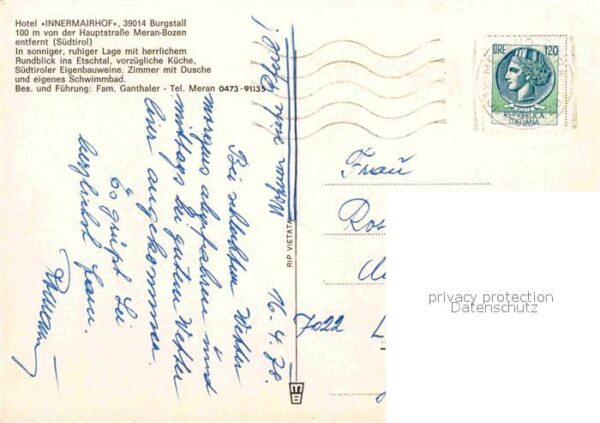 Hotel »INNERMAIRHOF«, 39014 Burgstall
100 m von der Hauptstraße Meran-Bozen
entfernt (Südtirol)
In sonniger, ruhiger Lage mit herrlichem
Rundblick ins Etschtal, vorzügliche Küche,
Südtiroler Eigenbauweine. Zimmer mit Dusche
und eigenes Schwimmbad.
Bes. und Führung: Fam. Ganthaler - Tel. Meran 0473-91135
Wagner siehe
16.4.78.
Bei schlechtem Wetter
morgens abgefahren und
mittags bei gutem Wetter
hier angekommen.
Es grüßt Sie
herzlichst
RIP VIETATA
LIRE 120
REPUBBLICA
ITALIANA
Frau
Ros
7022 L
privacy protection
Datenschutz